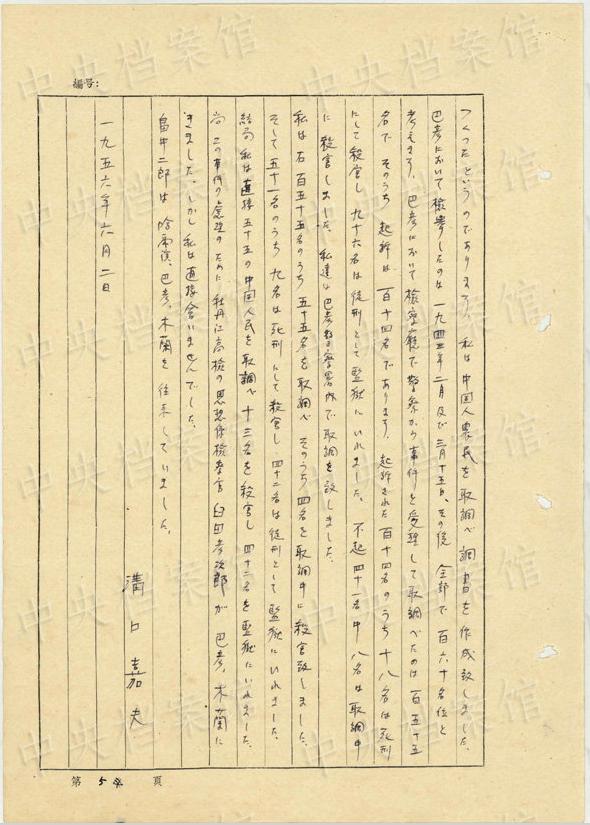 編号:
つくつたというのであります。 私は中国人農民を取調べ調書を作成致しました。
巴彦において検挙したのは一九四三年二月及び三月十五日、その後 全部で 百六十名位と
考えます。 巴彦において検察廳で警察から事件を受理して取調べたのは 百五十五
名で そのうち 起訴は 百十四名であります。 起訴された 百十四名のうち 十八名は死刑
にして殺害し 九十六名は徒刑として監獄にいれました。 不起 四十一名中 八名は取調中
に 殺害しました。 私達は 巴彦 警察署内で取調を致しました。
私は右百五十五名のうち 五十五名を取調べ そのうち四名を取調中に殺害致しました。
そして五十一名のうち 九名は死刑にして殺害し 四十二名は徒刑として監獄にいれました。
結局 私は直接五十五の中国人民を取調べ 十三名を殺害し 四十二名を監獄にいれました。
尚 この事件の處理のために 牡丹江高検の思想係検察官 臼田彦次郎が 巴彦、木蘭に
きました。しかし私は直接会いませんでした。
畠中二郎は 哈爾濱、巴彦、木蘭を往来していました。
溝口嘉夫
一九五六年六月二日
第 5 頁
中央档案馆